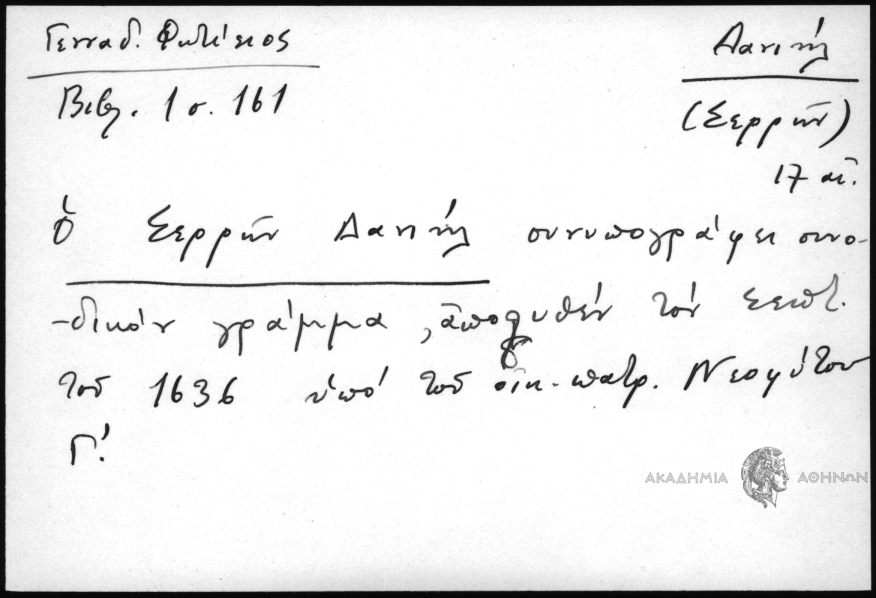 Γενναδ. Φωτίειος
Βιβλ. 1 σ. 161
Δανιήλ
(Σερρῶν)
17 αἰ.
Ὁ Σερρῶν Δανιήλ συνυπογράφει συνο-
-δικόν γράμμα, ἀπολυθέν τόν Σεπτ.
τοῦ 1636 ὑπό τοῦ οἰκ. πατρ. Νεοφύτου
Γ΄.
ΑΚΑΔΗΜΙΑ ΑΘΗΝΩΝ